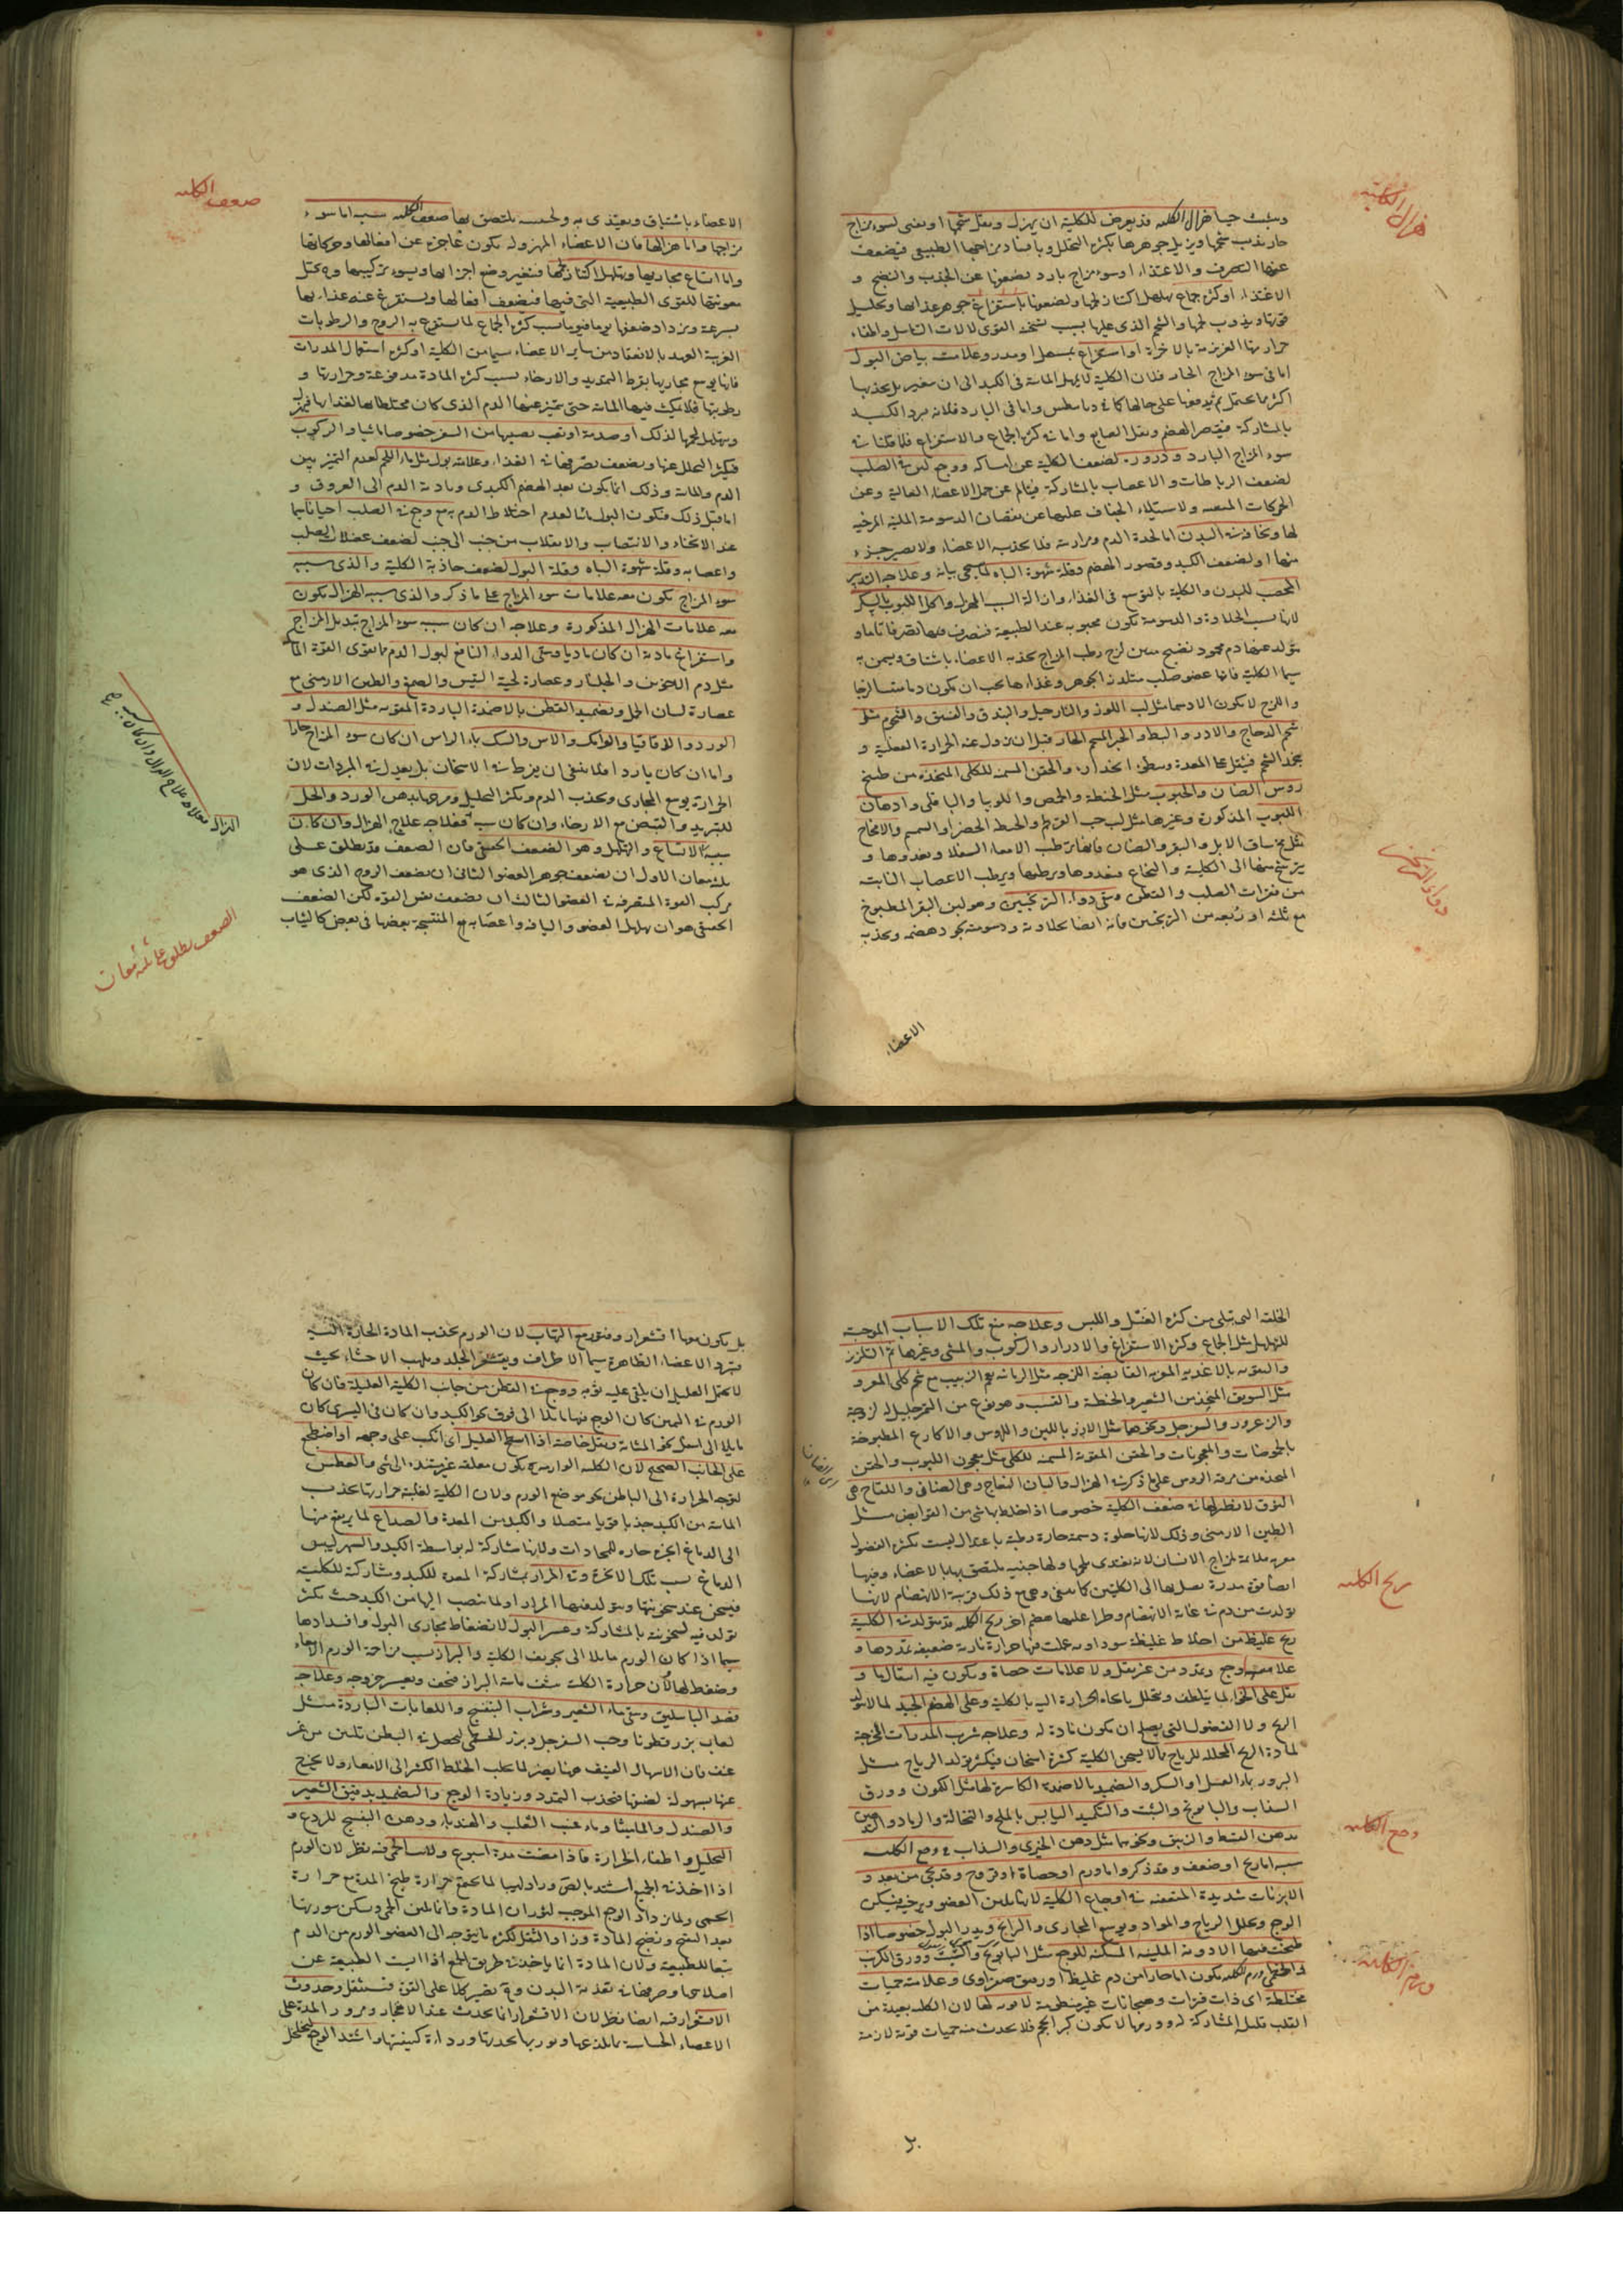 هزال الكلية
ويثبت جيدا هزال الكلية قد يعرض للكلية ان يهزل ويقل شحمها او يفنى لسوء مزاج
حار يذيب شحمها ويزيل جوهرها بكثرة التحلل وبافساد مزاجها الطبيعى فيضعف
عنها التصرف والاغتذاء او سوء مزاج بارد يضعفها عن الجذب والنضج و
الاغتذاء او كثرة جماع يهلهل اكتناز لحمها ويضعفها باستفراغ جوهر غذائها وتحليل
قوتها ويذوب لحمها والشحم الذى عليها بسبب القوى لالات التناسل واطفاء
حرارتها الغريزية بالاخرة او استفراغ بمسهل او مدر وعلامته بياض البول
اما فى سوء المزاج الحار فلان الكلية لا يمهل المائية فى الكبد الى ان يتغير بل يجذبها
اكثر ما يحتمل ثم يدفعها على حالها كما فى ديابيطس واما فى البارد فلانه يبرد الكبد
بالمشاركة فيقصر الهضم ويقل الصابغ واما فى كثرة الجماع والاستفراغ فلا
سوء المزاج البارد ودروره لضعف الكلية عن امساكه ووجع لين فى الصلب
لضعف الرباطات والاعصاب بالمشاركة فيتالم عن حمل الاعضاء العالية وعن
الحركات المتعبة ولاستيلاء الجفاف عليها عن نقصان الدسومة الملينة المرخية
لها ونحافة البدن اما لحدة الدم ومرارته فلا يجذبه الاعضاء ولا يصير جزء
منها او لضعف الكبد وقصور الهضم وقلة شهوة الباه لما سيجئ بيانه وعلاجه التدبير
المخصب للبدن والكلية بالتوسع فى الغذاء وازالة السبب المهزل واكل اللبوب بالسكر
لانها بسبب الحلاوة والدسومة يكون محبوبه عند الطبيعة فيتصرف فيها تصرفا تاما و
يتولد عنها دم محمود نضيج متين لزج رطب المزاج يجذبه الاعضاء باشتياق ويسمن به
سيما الكلية فانها عضو صلب متلزز الجوهر وغذاءها يجب ان يكون دما متينا لزجا
واللزج لا يكون الا دسما مثل لب اللوز والنارجيل والبندق والفستق والشحوم مثل
شحم الدجاج والاوز والبط والخبز المسمم الحار قبل ان يزول عنه الحرارة الفعلية و
يجمد الشحم فيثقل على المعدة ويبطئ انحداره والحقن المسمنة للكلى المتخذة من طبيخ
روس الضان والحبوب مثل الحنطة والحمص واللوبيا والباقلى وادهان
اللبوب المذكورة وغيرها مثل لب حب القرطم والحبة الخضراء والسمسم والامخاخ
مثل مخ ساق الابل والبقر والضان فانها ترطب الامعاء السفلا ويغذوها و
يترشح منها الى الكلية والنخاع فيغذوها ويرطبها ويرطب الاعصاب النابتة
من فقرات الصلب والقطن وسقى دواء الترنجبين وهو لبن البقر المطبوخ
مع ثلثه او ربعه من الترنجبين فانه ايضا بحلاوته ودسومته يجود هضمه ويجذبه
دواء الترنجبين
الاعضاء
ضعف الكلية
الاعضاء باشتياق ويغتذى به ولحسه يلتصق بها ضعف الكلية سببه اما سوء
مزاجها واما هزالها فان الاعضاء المهزولة يكون عاجزة عن افعالها وحركاتها
واما اتساع مجاريها وتهلهل اكتناز لحمها فيتغير وضع اجزائها ويسوء تركيبها ويختل
معونتها للقوى الطبيعية التى فيها فيضعف افعالها ويستفرغ عنه غذاءها
بسرعة ويزداد ضعفها يوما فيوما بسبب كثرة الجماع لما يستفرغ به الروح والرطوبات
الغريبة العهد بالانعقاد من ساير الاعضاء سيما من الكلية او كثرة استعمال المدرات
فانها يوسع مجاريها بفرط التمديد والارخاء بسبب كثرة المادة مدفوعة وحرارتها و
رطوبتها فلا يمكث فيها المائية حتى يتميز عنها الدم الذى كان مختلطا بها لغذائها فيهزل
ويتهلهل لحمها لذلك او صدمة او تعب يصيبها من السفر خصوصا ماشيا والركوب
فيكثر التحلل عنها ويضعف تصرفها فى الغذاء وعلامته بول مثل ماء اللحم لعدم التميز بين
الدم والمائية وذلك انما يكون بعد الهضم الكبدى وتادية الدم الى العروق و
اما قبل ذلك فيكون البول مائيا لعدم اختلاط الدم به مع وجع فى الصلب احيانا سيما
عند الانحناء والانتصاب والانقلاب من جنب الى جنب لضعف عضلات الصلب
واعصابه وقلة شهوة الباه وقلة البول لضعف جاذبة الكلية والذى سببه
سوء المزاج يكون معه علامات سوء المزاج على ما ذكر والذى سببه الهزال يكون
معه علامات الهزال المذكورة وعلاجه ان كان سببه سوء المزاج تبديل المزاج
واستفراغ مادته ان كان ماديا وسقى الدواء النافع لبول الدم مما يقوى القوة الماسكة
مثل دم الاخوين والجلنار وعصارة لحية التيس والصمغ والطين الارمنى مع
عصارة لسان الحمل وتضميد القطن بالاضمدة الباردة المقوية مثل الصندل و
الورد والاقاقيا والرامك والاس والسك بماء الراس ان كان سوء المزاج حارا
واما ان كان باردا فلا ينبغى ان يفرط فى الاسخان بل يعدل بالمبردات لان
الحرارة يوسع المجارى ويجذب الدم ويكثر التحليل ومرخها بدهن الورد والخل
للتبريد والتقبض مع الارخاء وان كان سببه فعلاجه علاج الهزال وان كان
سببه الاتساع والتهلهل وهو الضعف الحقيقى فان الضعف قد يطلق على
ثلثة معان الاول ان يضعف جوهر العضو الثانى ان يضعف الروح الذى هو
مركب القوة المتصرفة فى العضو الثالث ان يضعف نفس القوة لكن الضعف
الحقيقى هو ان يهلهل العضو والياف واعصابه المنتسجة بعضها فى بعض كالثياب
الضعف يطلق على ثلثة معان
الخلقة التى تبلى من كثرة الغسل واللبس وعلاجه منع تلك الاسباب الموجبة
للتهلهل مثل الجماع وكثرة الاستفراغ والادرار والركوب والمشى وغيرها ثم التلزيز
والتقوية بالاغذية المقوية القابضة اللزجة مثل الرمانية بعجم الزبيب مع شحم كلى الماعز و
مثل السويق المتخذ من الشعير والحنطة والقسب وهو نوع من التمر جليل له لزوجة
والزعرور والسفرجل ونحوها مثل الارز باللبن والروس والاكارع المطبوخة
بالحموضات والمعجونات والحقن المقوية المسمنة للكلى مثل معجون اللبوب والحقن
المتخذة من مرقة الروس على ما ذكر فى الهزال والبان النعاج وهى الضان واللقاح هى
النوق لا نظير لها فى ضعف الكلية خصوصا اذا خلط بها شئ من القوابض مثل
الطين الارمنى وذلك لانها حلوة دسمة حارة رطبة باعتدال ليست بكثيرة الفضول
ملائمة لمزاج الانسان لانه يغتذى بلحمها ولها جبنية يلتصق بها بالاعضاء وفيها
ايضا قوة مدرة يصل بها الى الكليتين كما ينبغى وهى مع ذلك قريبة الانهضام لانها
تولدت من دم فى غاية الانهضام وطرا عليها هضم اخر ريح الكلية قد يتولد فى الكلية
ريح غليظ من اخلاط غليظة سوداوية عملت فيها حرارة نارية ضعيفة يمددها و
علامته وجع وتمدد من غير ثقل ولا علامات حصاة ويكون فيه انتقال ما و
يقل على الخوى لما يتلطف ويتحلل بانحاء الحرارة اليه بالكلية وعلى الهضم الجيد لما لا يتولد
الريح ولا الفضول التى يصلح ان يكون مادة له وعلاجه شرب المدرات المخرجة
لمادة الريح المحللة للرياح مما لا يسخن الكلية كثرة اسخان فيكثر تولد الرياح مثل
البزور بماء العسل او السكر والتضميد بالاضمدة الكاسرة لها مثل الكمون وورق
السذاب والبابونج والشبت والتكميد اليابس بالملح والنخالة والرماد والتدهين
بدهن القسط والزنبق ونحوهما مثل دهن الخيرى والسذاب وجع الكلية
سببه اما ريح او ضعف وقد ذكر واما ورم او حصاة او قروح وقد يجئ من بعد و
الابزنات شديدة المنفعة فى اوجاع الكلية لانها يلين العضو ويرخيه فيسكن
الوجع ويحلل الرياح والمواد ويوسع المجارى والرابخ ويدر البول خصوصا اذا
طبخت فيها الادوية الملينة المسكنة للوجع مثل البابونج والشبت وورق الكرنب
والخطمى ورم الكلية يكون اما حارا من دم غليظ او رقيق صفراوى وعلامته حميات
مختلطة اى ذات فترات وهيجانات غير منتظمة لا نوبة لها لان الكلية بعيدة من
القلب قليل المشاركة له وورمها لا يكون كبير الحجم فلا يحدث منه حميات قوية لازمة
ريح الكلية
وجع الكلية
ورم الكلية
بل
بل يكون معها اقشعرار وفتور مع التهاب لان الورم يجذب المادة الحارة اليه
فيبرد الاعضاء الظاهرة سيما الاطراف ويقشعر الجلد ويلهب الاحشاء بحيث
لا يحتمل العليل ان يلقى عليه ثوبه ووجع فى القطن من جانب الكلية العليلة فان كان
الورم فى اليمين كان الوجع فيها مائلا الى فوق نحو الكبد وان كان فى اليسرى كان
مايلا الى اسفل نحو المثانة ويثقل خاصة اذا انبطح العليل اى انكب على وجهه او اضطجع
على الجانب الصحيح لان الكلية الوارمة يكون معلقة غير مستندة الى شئ والعطش
لتوجه الحرارة الى الباطن نحو موضع الورم ولان الكلية لغلبة حرارتها يجذب
المائية من الكبد جذبا قويا متصلا والكبد من المعدة والصداع لما يرتفع منها
الى الدماغ ابخرة حارة للمحاذات ولانها مشاركة له بواسطة الكبد والسهر ليبس
الدماغ بسبب تلك الابخرة وقئ المرار بمشاركة المعدة للكبد ومشاركة للكلية
فيسخن عند سخونتها ويتولد فيها المرار او لما ينصب اليها من الكبد حيث يكثر
تولده فيه لسخونته بالمشاركة وعسر البول لانضغاط مجارى البول وانسدادها
سيما اذا كان الورم مايلا الى تجويف الكلية والبراز بسبب مزاحمة الورم الامعاء
وضغطه لها ولان حرارة الكلية ينشف مائية البراز فيجف ويعسر خروجه وعلاجه
فصد الباسليق وسقى ماء الشعير وشراب البنفسج واللعابات الباردة مثل
لعاب بزر قطونا وحب السفرجل وبزر الخطمى ليحصل فى البطن تليين من غير
عنف فان الاسهال العنيف هنا يضر لما يجلب الخلط الكثير الى الامعاء ولا يخرج
عنها بسهولة لضيقها فيحدث التمدد وزيادة الوجع والتضميد بدقيق الشعير
والصندل والماميثا وماء عنب الثعلب والهندباء ودهن البنفسج للردع و
التحليل واطفاء الحرارة فاذا مضت مدة اسبوع ولا سيما لحمى فيه نظر لان الورم
اذا اخذ فى الجمع اشتد بالضرورة اذ لهيبها لما يجتمع حرارة طبخ المدة مع حرارة
الحمى ولما يزداد الوجع الموجب لثوران المادة وانما يلين الحمى ويسكن سورتها
بعد النضج ونضج المادة وزاد الثقل لكثرة ما يتوجه الى العضو الورم من الدم
تبعا للطبيعة ولان المادة انما ياخذ فى طريق الجمع اذا ايست الطبيعة عن
اصلاحها وصرفها فى تغذية البدن وح يصير كلا على القوة فيستثقل وحدوث
الاقشعرار فيه ايضا نظر لان الاقشعرار انما يحدث عند الانفجار ومرور المدة على
الاعضاء الحساسة بما يلذعها ويوذيها بحدتها ورداءة كيفيتها واشتد الوجع ليخلخل